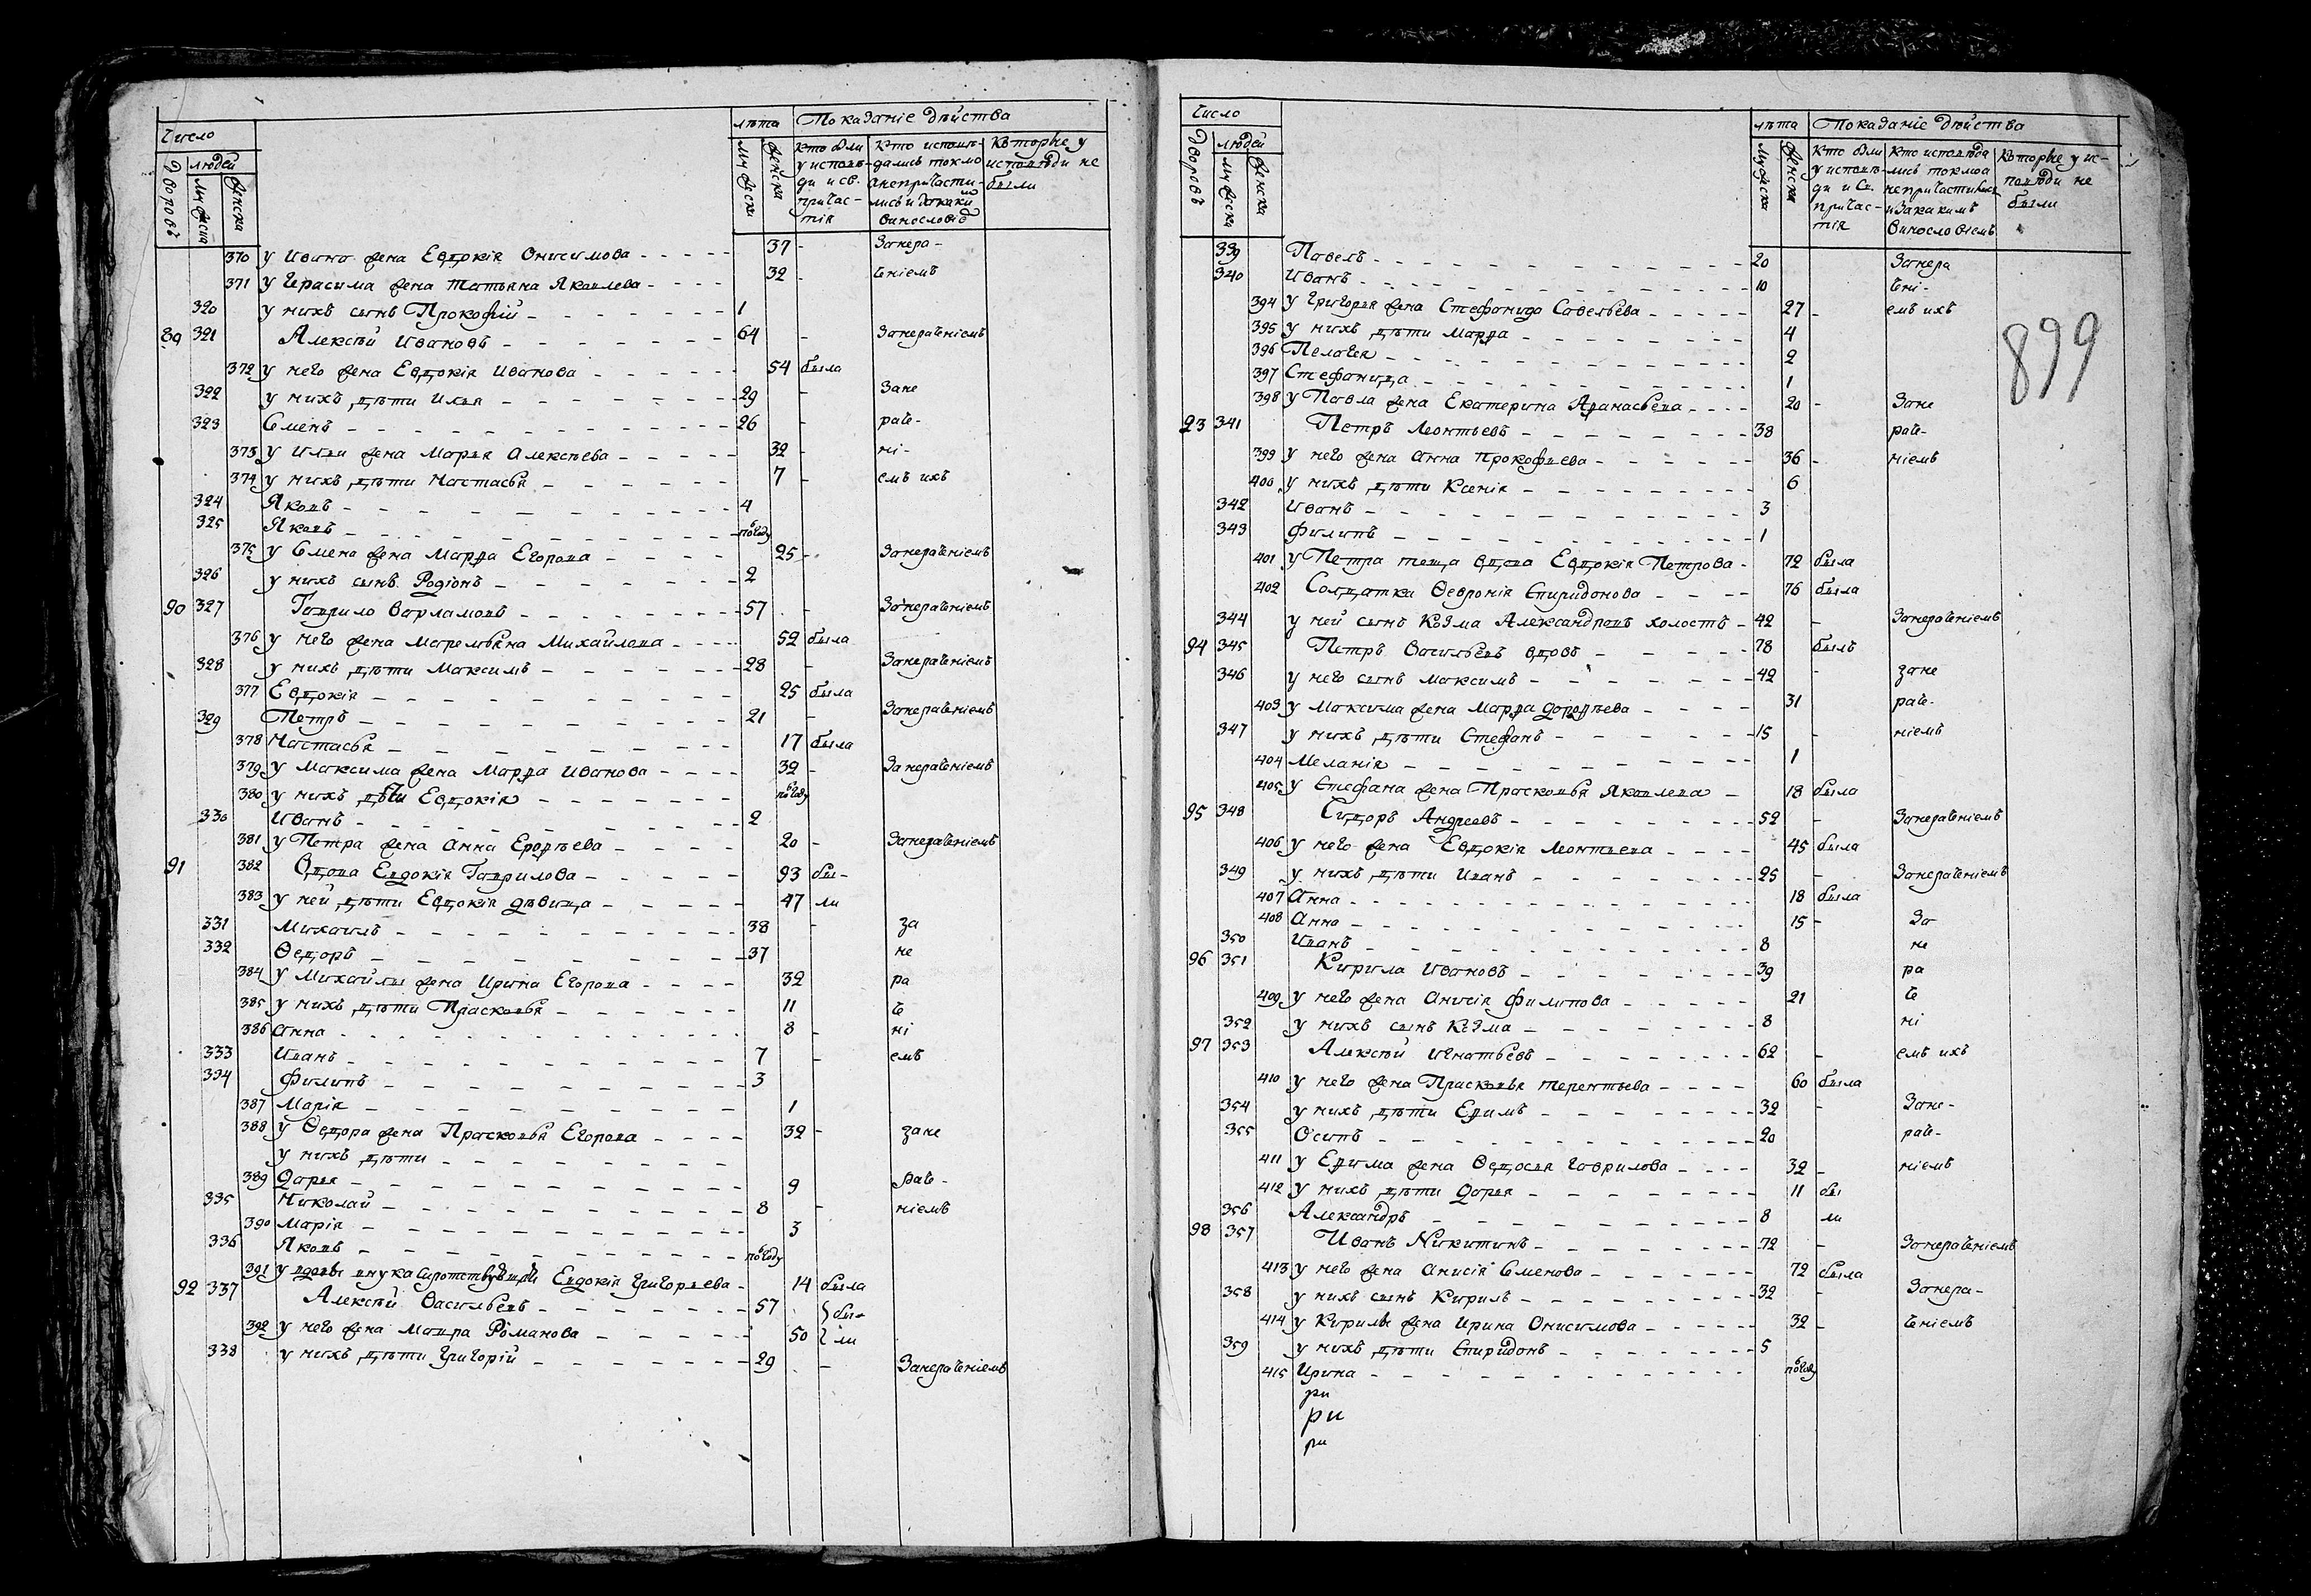 Число
лѣта Показаніе дѣйства
дворовъ людей мужеска женска
мужеска женска
кто были у исповѣди и св. причастія
кто исповѣдались токмо а непричастились и за какимъ винословіемъ
которые у исповѣди не были
370 у Ивана жена Евдокія Онисимова 37 - Занера-
371 у Герасима жена Татьяна Яковлева 32 - ченіемъ
320 у нихъ сынъ Прокофій 1
89 321 Алексѣй Ивановъ 64 - Занераченіемъ
372 у него жена Евдокія Иванова 54 была
322 у нихъ дѣти Илья 29 - Зане
323 Семенъ 26 - раче-
373 у Ильи жена Марья Алексѣева 32 - ні-
374 у нихъ дѣти Настасья 7 - емъ ихъ
324 Яковъ 4
325 Яковъ полгоду
375 у Семена жена Марфа Егорова 25 - Занераченіемъ
326 у нихъ сынъ Родіонъ 2
90 327 Гаврило Варламовъ 57 - Занераченіемъ
376 у него жена Маремьяна Михайлова 52 была
328 у нихъ дѣти Максимъ 28 - Занераченіемъ
377 Евдокія 25 была
329 Петръ 21 - Занераченіемъ
378 Настасья 17 была
379 у Максима жена Марфа Иванова 32 - Занераченіемъ
380 у нихъ дѣти Евдокія полгоду
330 Иванъ 2
381 у Петра жена Анна Ерофѣева 20 - Занераченіемъ
91 382 Вдова Евдокія Гаврилова 93 бы-
383 у ней дѣти Евдокія дѣвица 47 ли
331 Михаилъ 38 - за
332 Ѳедоръ 37 не
384 у Михайлы жена Ирина Егорова 32 ра
385 у нихъ дѣти Прасковья 11 че
386 Анна 8 - ні
333 Иванъ 7 - емъ
334 Филипъ 3
387 Марія 1
388 у Ѳедора жена Прасковья Егорова 32 - зане
у нихъ дѣти
389 Дарья 9 раче-
335 Николай 8 - ніемъ
390 Марія 3
336 Яковъ полгоду
391 у вдовы внука сиротствующая Евдокія Григорьева 14 была
92 337 Алексѣй Васильевъ 57 } бы-
392 у него жена Мавра Романова 50 } ли
338 у нихъ дѣти Григорій 29 - Занераченіемъ
Число
лѣта Показаніе дѣйства
дворовъ людей мужеска женска
мужеска женска
кто были у исповѣди и св. причастія
кто исповѣдались токмо а непричастились и за какимъ винословіемъ
которые у исповѣди не были
899
339 Павелъ 20 Занера
340 Иванъ 10 чені-
394 у Григорья жена Стефанида Савельева 27 - емъ ихъ
395 у нихъ дѣти Марфа 4
396 Пелагея 2
397 Стефанида 1
398 у Павла жена Екатерина Афанасьева 20 - Зане
93 341 Петръ Леонтьевъ 38 раче-
399 у него жена Анна Прокофьева 36 - ніемъ
400 у нихъ дѣти Ксенія 6
342 Иванъ 3
343 Филипъ 1
401 у Петра теща вдова Евдокія Петрова 72 была
402 Солдатка Ѳевронія Спиридонова 76 была
344 у ней сынъ Козма Александровъ холостъ 42 - Занераченіемъ
94 345 Петръ Васильевъ вдовъ 78 былъ
346 у него сынъ Максимъ 42 - зане
403 у Максима жена Марфа Дорофѣева 31 раче-
347 у нихъ дѣти Стефанъ 15 - ніемъ
404 Меланія 1
405 у Стефана жена Прасковья Яковлева 18 была
95 348 Сидоръ Андреевъ 52 - Занераченіемъ
406 у него жена Евдокія Леонтьева 45 была
349 у нихъ дѣти Иванъ 25 - Занераченіемъ
407 Анна 18 была
408 Анна 15 - За
350 Иванъ 8 не
96 351 Кирила Ивановъ 39 ра
409 у него жена Анисія Филипова 21 че
352 у нихъ сынъ Козма 8 ні
97 353 Алексѣй Игнатьевъ 62 - емъ ихъ
410 у него жена Прасковья Терентьева 60 была
354 у нихъ дѣти Ефимъ 32 - Зане-
355 Осипъ 20 раче-
411 у Ефима жена Ѳедосья Гаврилова 32 - ніемъ
412 у нихъ дѣти Дарья 11 бы
356 Александръ 8 ли
98 357 Иванъ Никитинъ 72 - Занераченіемъ
413 у него жена Анисія Семенова 72 была
358 у нихъ сынъ Кирилъ 32 - Занера-
414 у Кирилы жена Ирина Онисимова 32 - ченіемъ
359 у нихъ дѣти Спиридонъ 5
415 Ирина полгоду
ри
ри
ри